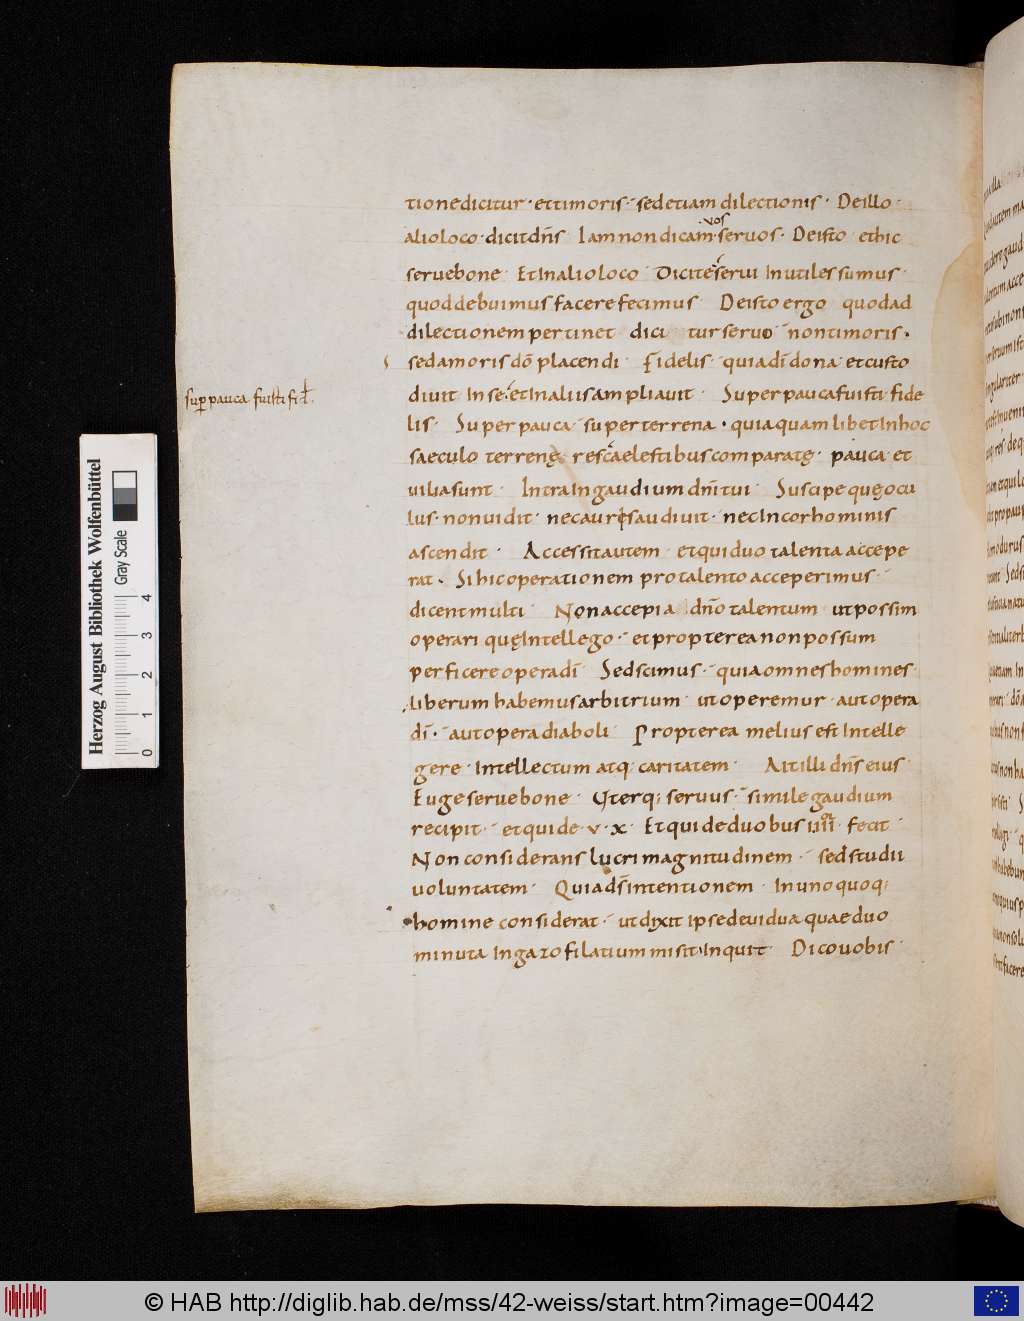 tione dicitur · et timoris · sed etiam dilectionis · De illo ·
alio loco · dicit dñs Iam non dicam · vos servos · De isto et hic
serue bone · Et In alio loco Dicite · servi Inutiles sumus ·
quod debuimus facere fecimus De isto ergo quod ad
dilectionem pertinet dici tur seruo non timoris ·
sed amoris dō placendi · Fidelis · quia dī dona et custo
super pauca fuisti fid.
diuit In se · et In aliis ampliauit · Super pauca fuisti fide
lis · Super pauca · super terrena · quia quam libet In hoc
saeculo terrenę res caelestibus comparatę · pauca et
uilia sunt · Intra In gaudium dñi tui · Suscipe quę ocu
lus · non uidit · nec auris audiuit · nec In cor hominis
ascendit · Accessit autem · et qui duo talenta accepe
rat · Si hic operationem pro talento acceperimus ·
dicent multi · Non accepi a dño talentum · ut possim
operari quę Intellego · et propterea non possum
perficere opera dī · Sed scimus · quia omnes homines ·
liberum habemus arbitrium · ut operemur · aut opera
dī · aut opera diaboli · Propterea melius est Intelle
gere · Intellectum atq: caritatem · Ait illi dñs eius ·
Euge serue bone · Vterq: seruus · simile gaudium
recipit · et qui de · v · x · Et qui de duobus IIII · fecit ·
Non considerans lucri magnitudinem · sed studii
uoluntatem · Quia ds̄ intentionem · In uno quoq:
homine considerat · ut dixit ipse de uidua quae duo
minuta In gazofilatium misit · Inquit · Dico uobis ·
Herzog August Bibliothek Wolfenbüttel
Gray Scale
0 1 2 3 4
© HAB http://diglib.hab.de/mss/42-weiss/start.htm?image=00442